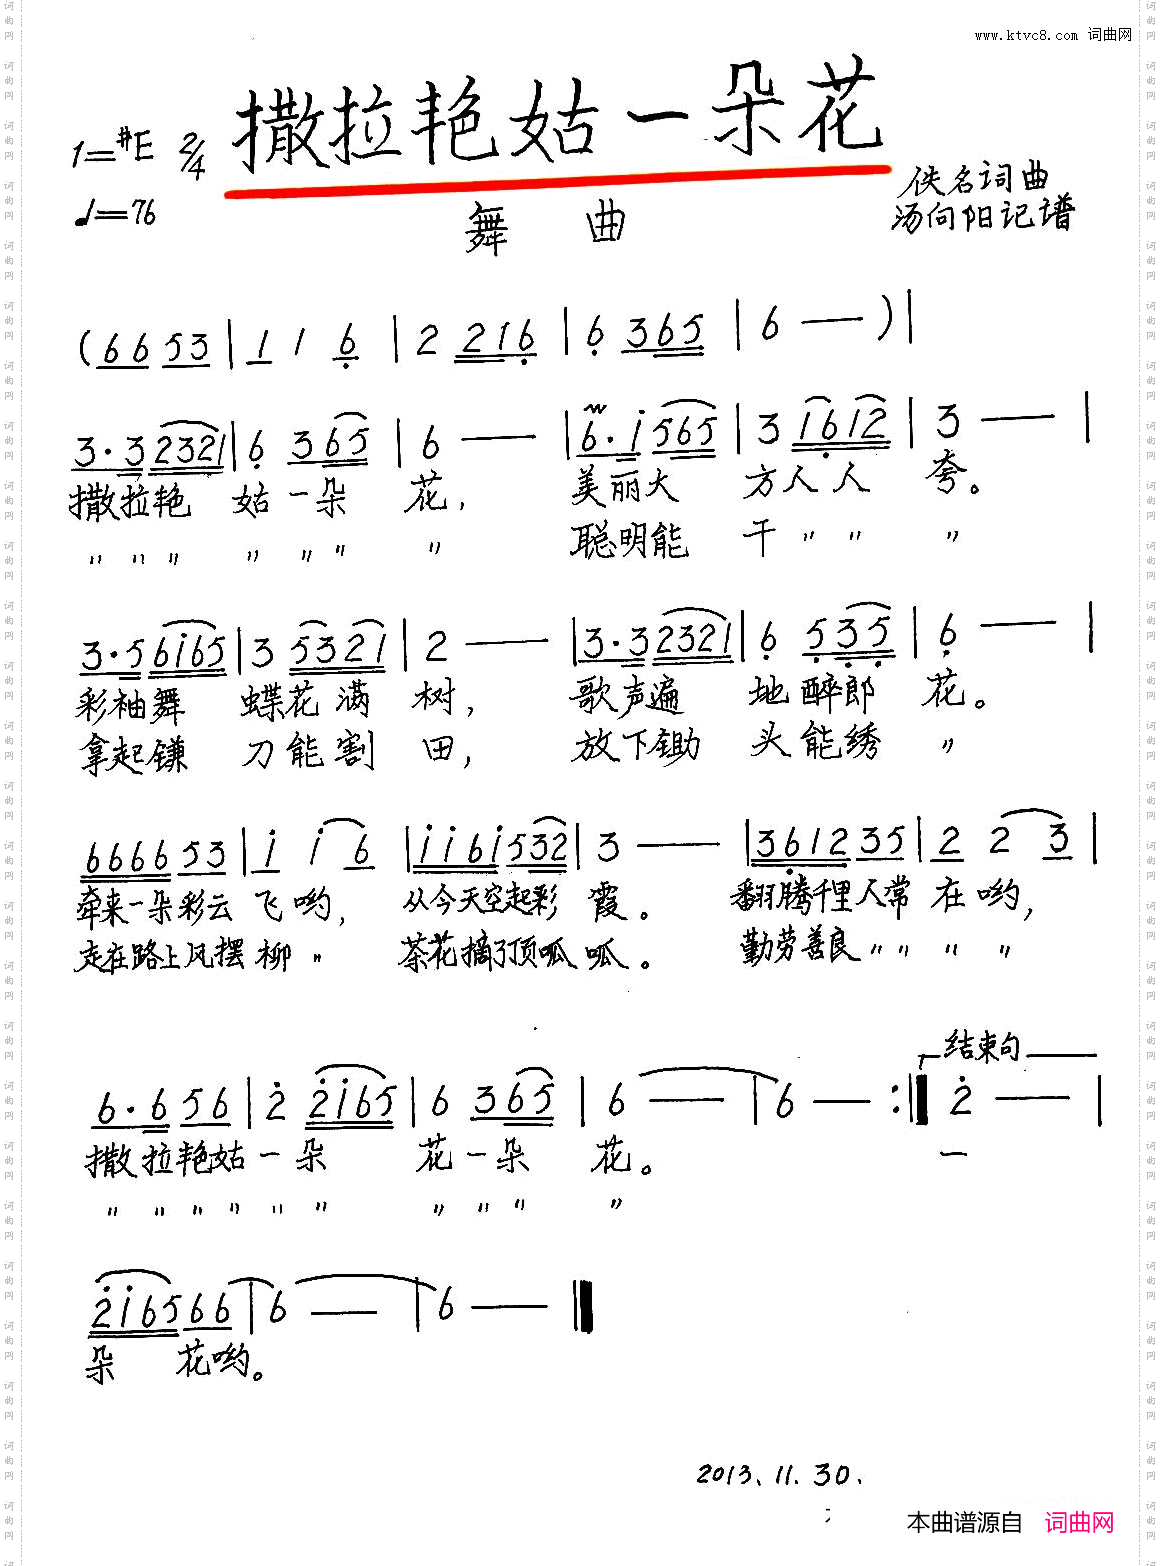 www.ktvc8.com 词曲网
撒拉艳姑一朵花
1=#E 2/4
♩=76
舞 曲
佚名词曲
汤向阳记谱
(66 53 | 1 1 6 | 2 2216 | 6 365 | 6 — ) |
3·3 2321 | 6 365 | 6 — | 6·i 565 | 3 1612 | 3 — |
撒拉艳 姑一朵 花, 美丽大 方人人 夸。
〃 〃 〃 〃 〃 〃 〃 聪明能 干〃 〃 〃
3·5 6i65 | 3 5321 | 2 — | 3·3 2321 | 6 535 | 6 — |
彩袖舞 蝶花满 树, 歌声遍 地醉郎 花。
拿起镰 刀能割 田, 放下锄 头能绣 〃
6666 53 | i i 6 | ii6i 532 | 3 — | 3612 35 | 2 2 3 |
牵来一朵彩云 飞哟, 从今天空起彩 霞。 翻腾千里人常 在哟,
走在路上风摆 柳 〃 茶花摘了顶呱 呱。 勤劳善良〃〃 〃 〃
结束句
6·6 56 | 2 2i65 | 6 365 | 6 — | 6 — :| 2 — |
撒拉艳姑一朵 花一朵 花。 一
〃 〃 〃 〃 〃 〃 〃 〃 〃 〃
2i65 66 | 6 — | 6 — ‖
朵 花哟。
2013.11.30.
本曲谱源自 词曲网